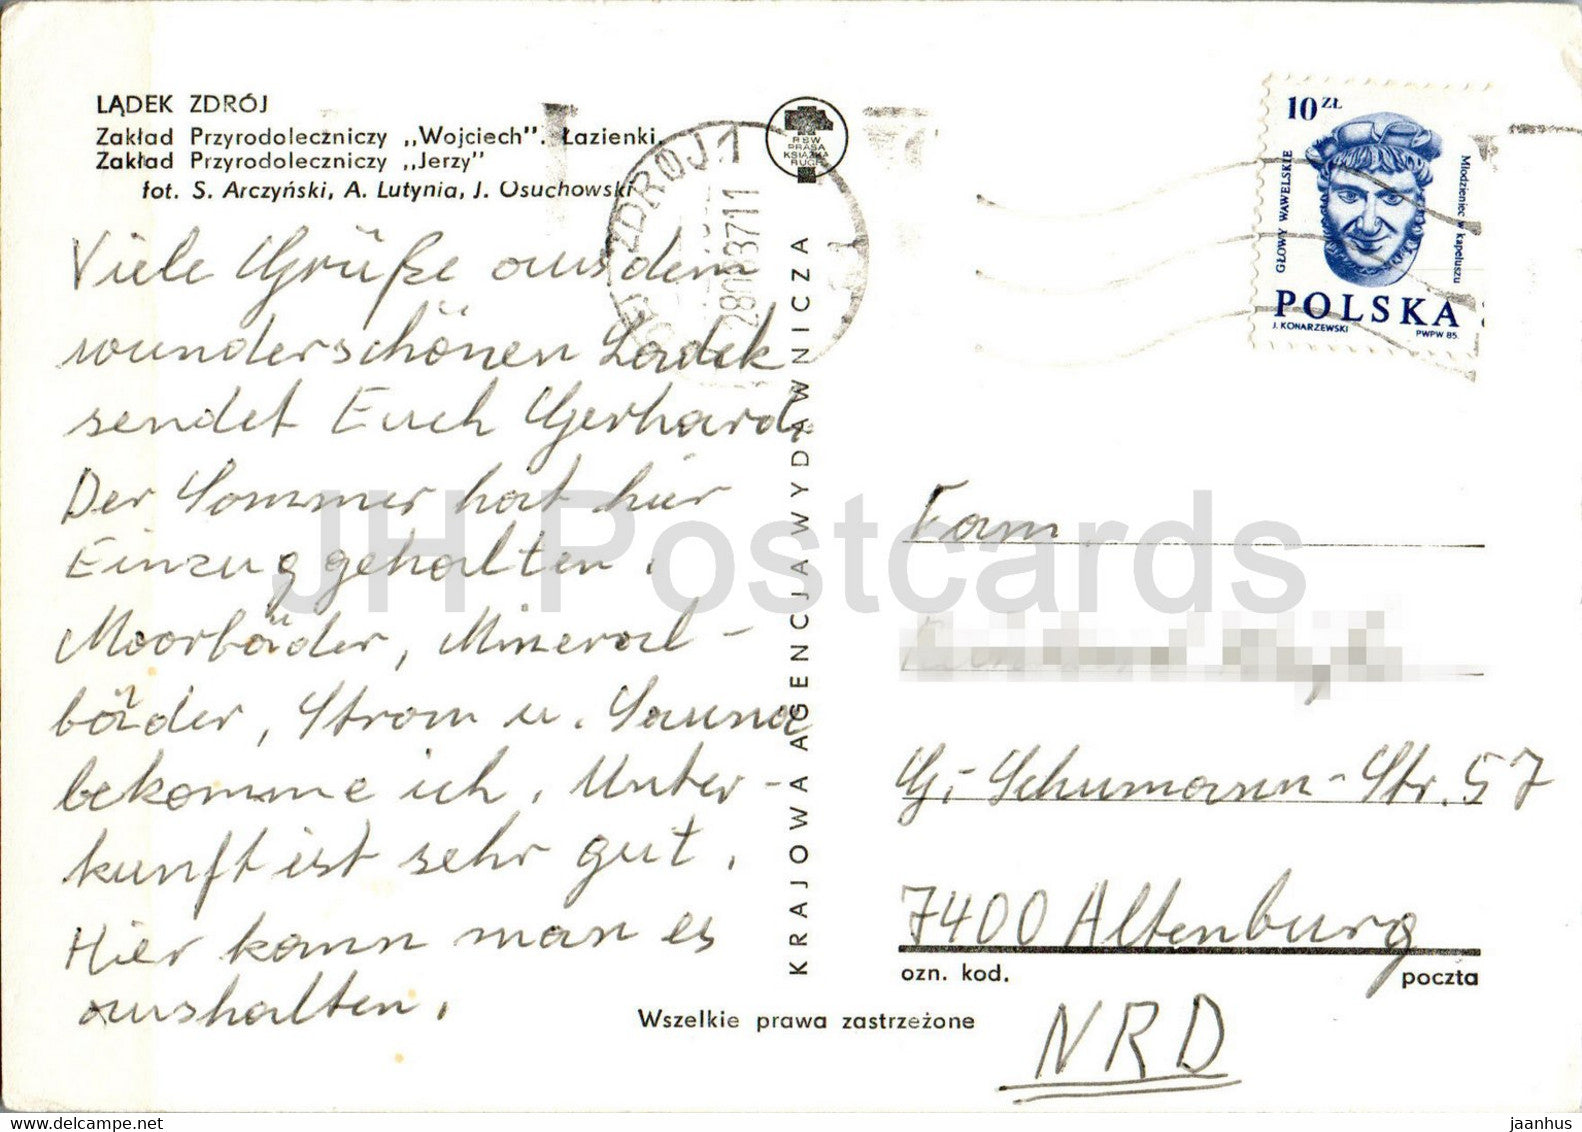 LĄDEK ZDRÓJ
Zakład Przyrodoleczniczy „Wojciech". Łazienki,
Zakład Przyrodoleczniczy „Jerzy"
fot. S. Arczyński, A. Lutynia, J. Osuchowski
Viele Grüße aus dem
wunderschönen Ladek
sendet Euch Gerhard.
Der Sommer hat hier
Einzug gehalten.
Moorbäder, Mineral-
bäder, Strom u. Sauna
bekomme ich. Unter-
kunft ist sehr gut.
Hier kann man es
aushalten.
ZDRÓJ 1
RSW
PRASA
KSIĄŻKA
RUCH
KRAJOWA AGENCJA WYDAWNICZA
Wszelkie prawa zastrzeżone
10 ZŁ
GŁOWY WAWELSKIE
Młodzieniec w kapeluszu
POLSKA
J. KONARZEWSKI PWPW 85.
Fam.
G.-Schumann-Str. 57
7400 Altenburg
ozn. kod. poczta
NRD
JH Postcards
www.delcampe.net
jaanhus